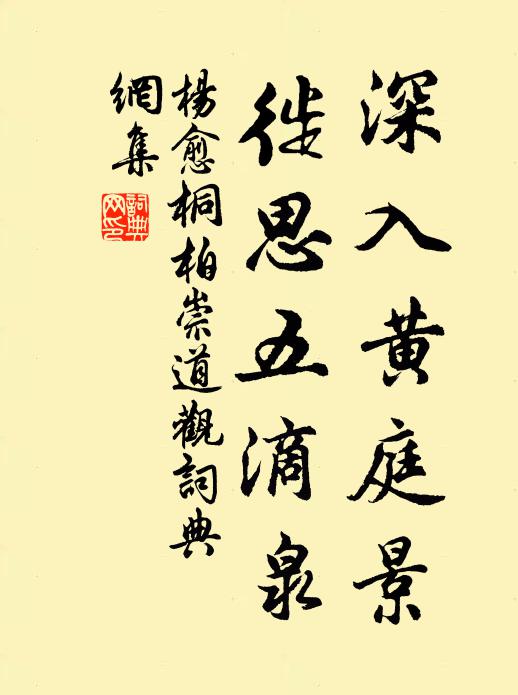 深入黄庭景
徙思五滴泉
楊愈桐柏崇道觀詞典
網集
詞典
网印